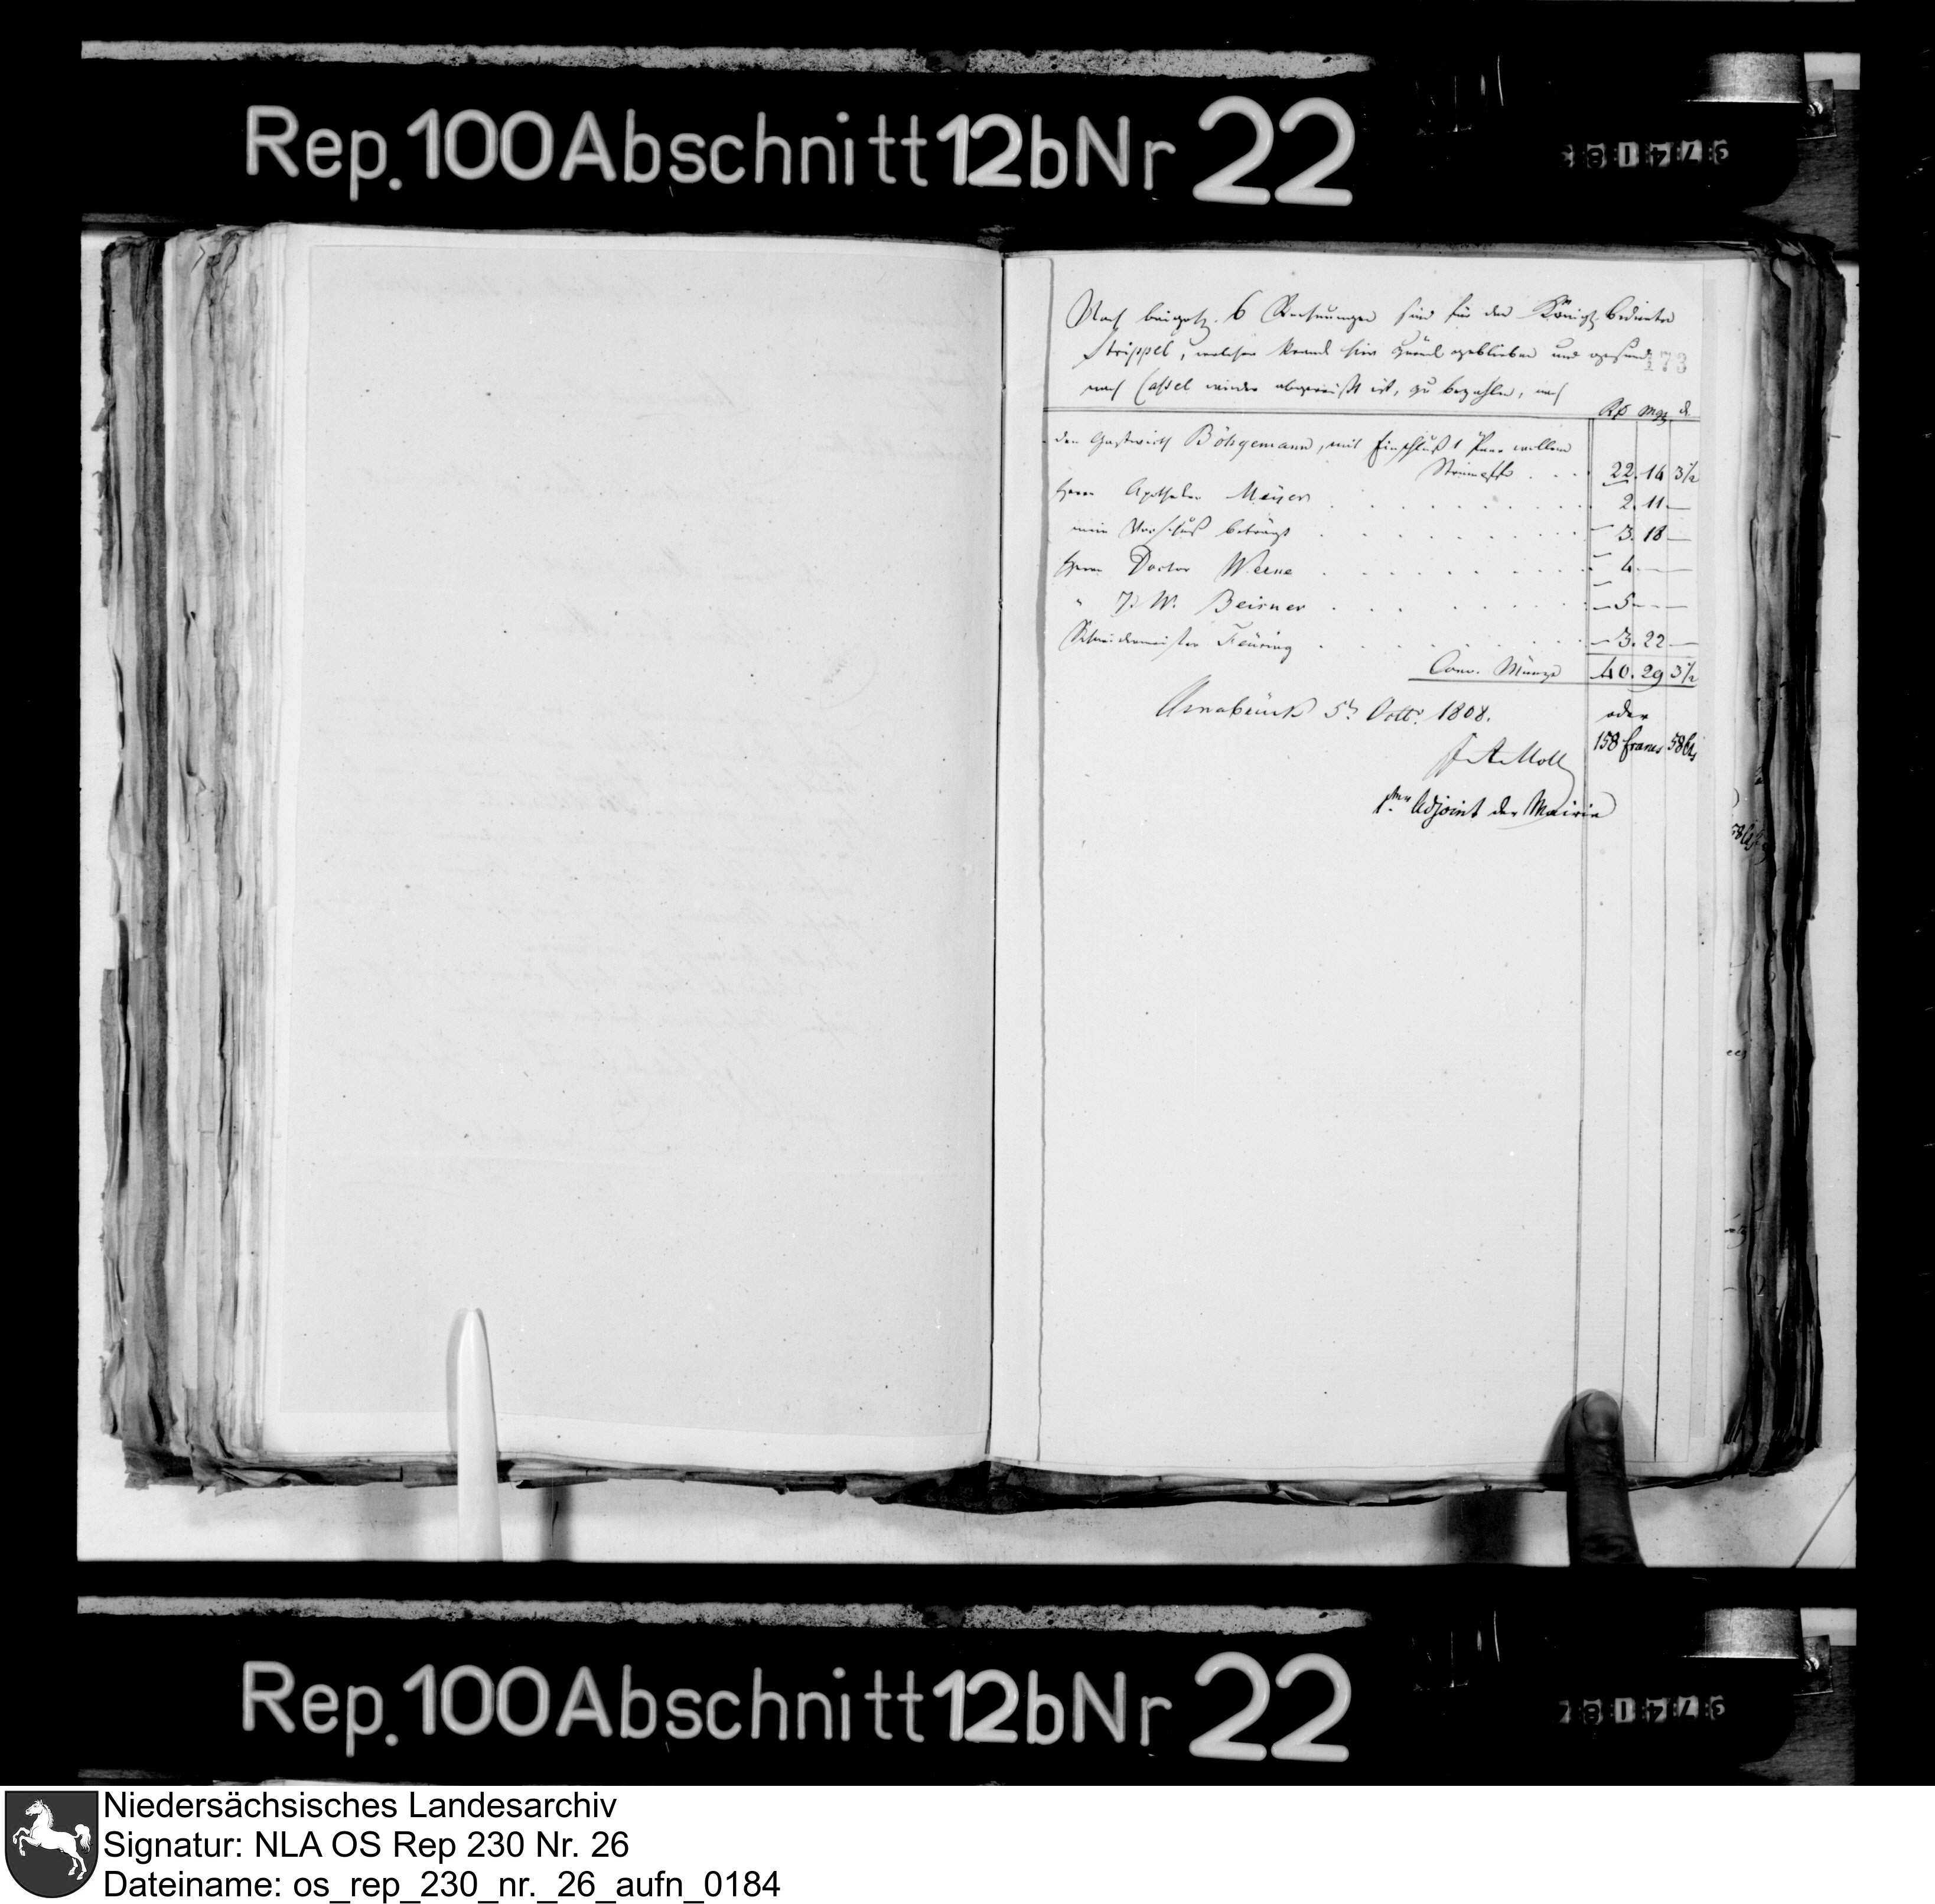 Rep. 100 Abschnitt 12b Nr 22
Nach beigeh. 6 Rechnungen sind für den Königl. Bedienten
Strippel, welcher krank hier zurück geblieben und gesund
173
nach Cassel wieder abgereißt ist, zu bezahlen, als
Rß mgg. d.
den Gastwirth Böhgemann, mit Einschluß 1 Paar wollene
Strümpfe . . . 22. 14 3½
Herrn Apotheker Meyer . . . . . . . . 2. 11 —
mein Vorschuß beträgt . . . . . . . . 3. 18 —
Herrn Doctor Werne . . . . . . . . 4. — —
" J. W. Beisner . . . . . . . . 5 — —
Schneidermeister Feüring . . . . . . . . 3. 22 —
Conv. Münze 40. 29 3½
Osnabrück 5t. Octbr. 1808. oder
158 francs 58 Cts
J A Moll
1ster Adjoint der Mairie
Rep. 100 Abschnitt 12b Nr 22
Niedersächsisches Landesarchiv
Signatur: NLA OS Rep 230 Nr. 26
Dateiname: os_rep_230_nr._26_aufn_0184